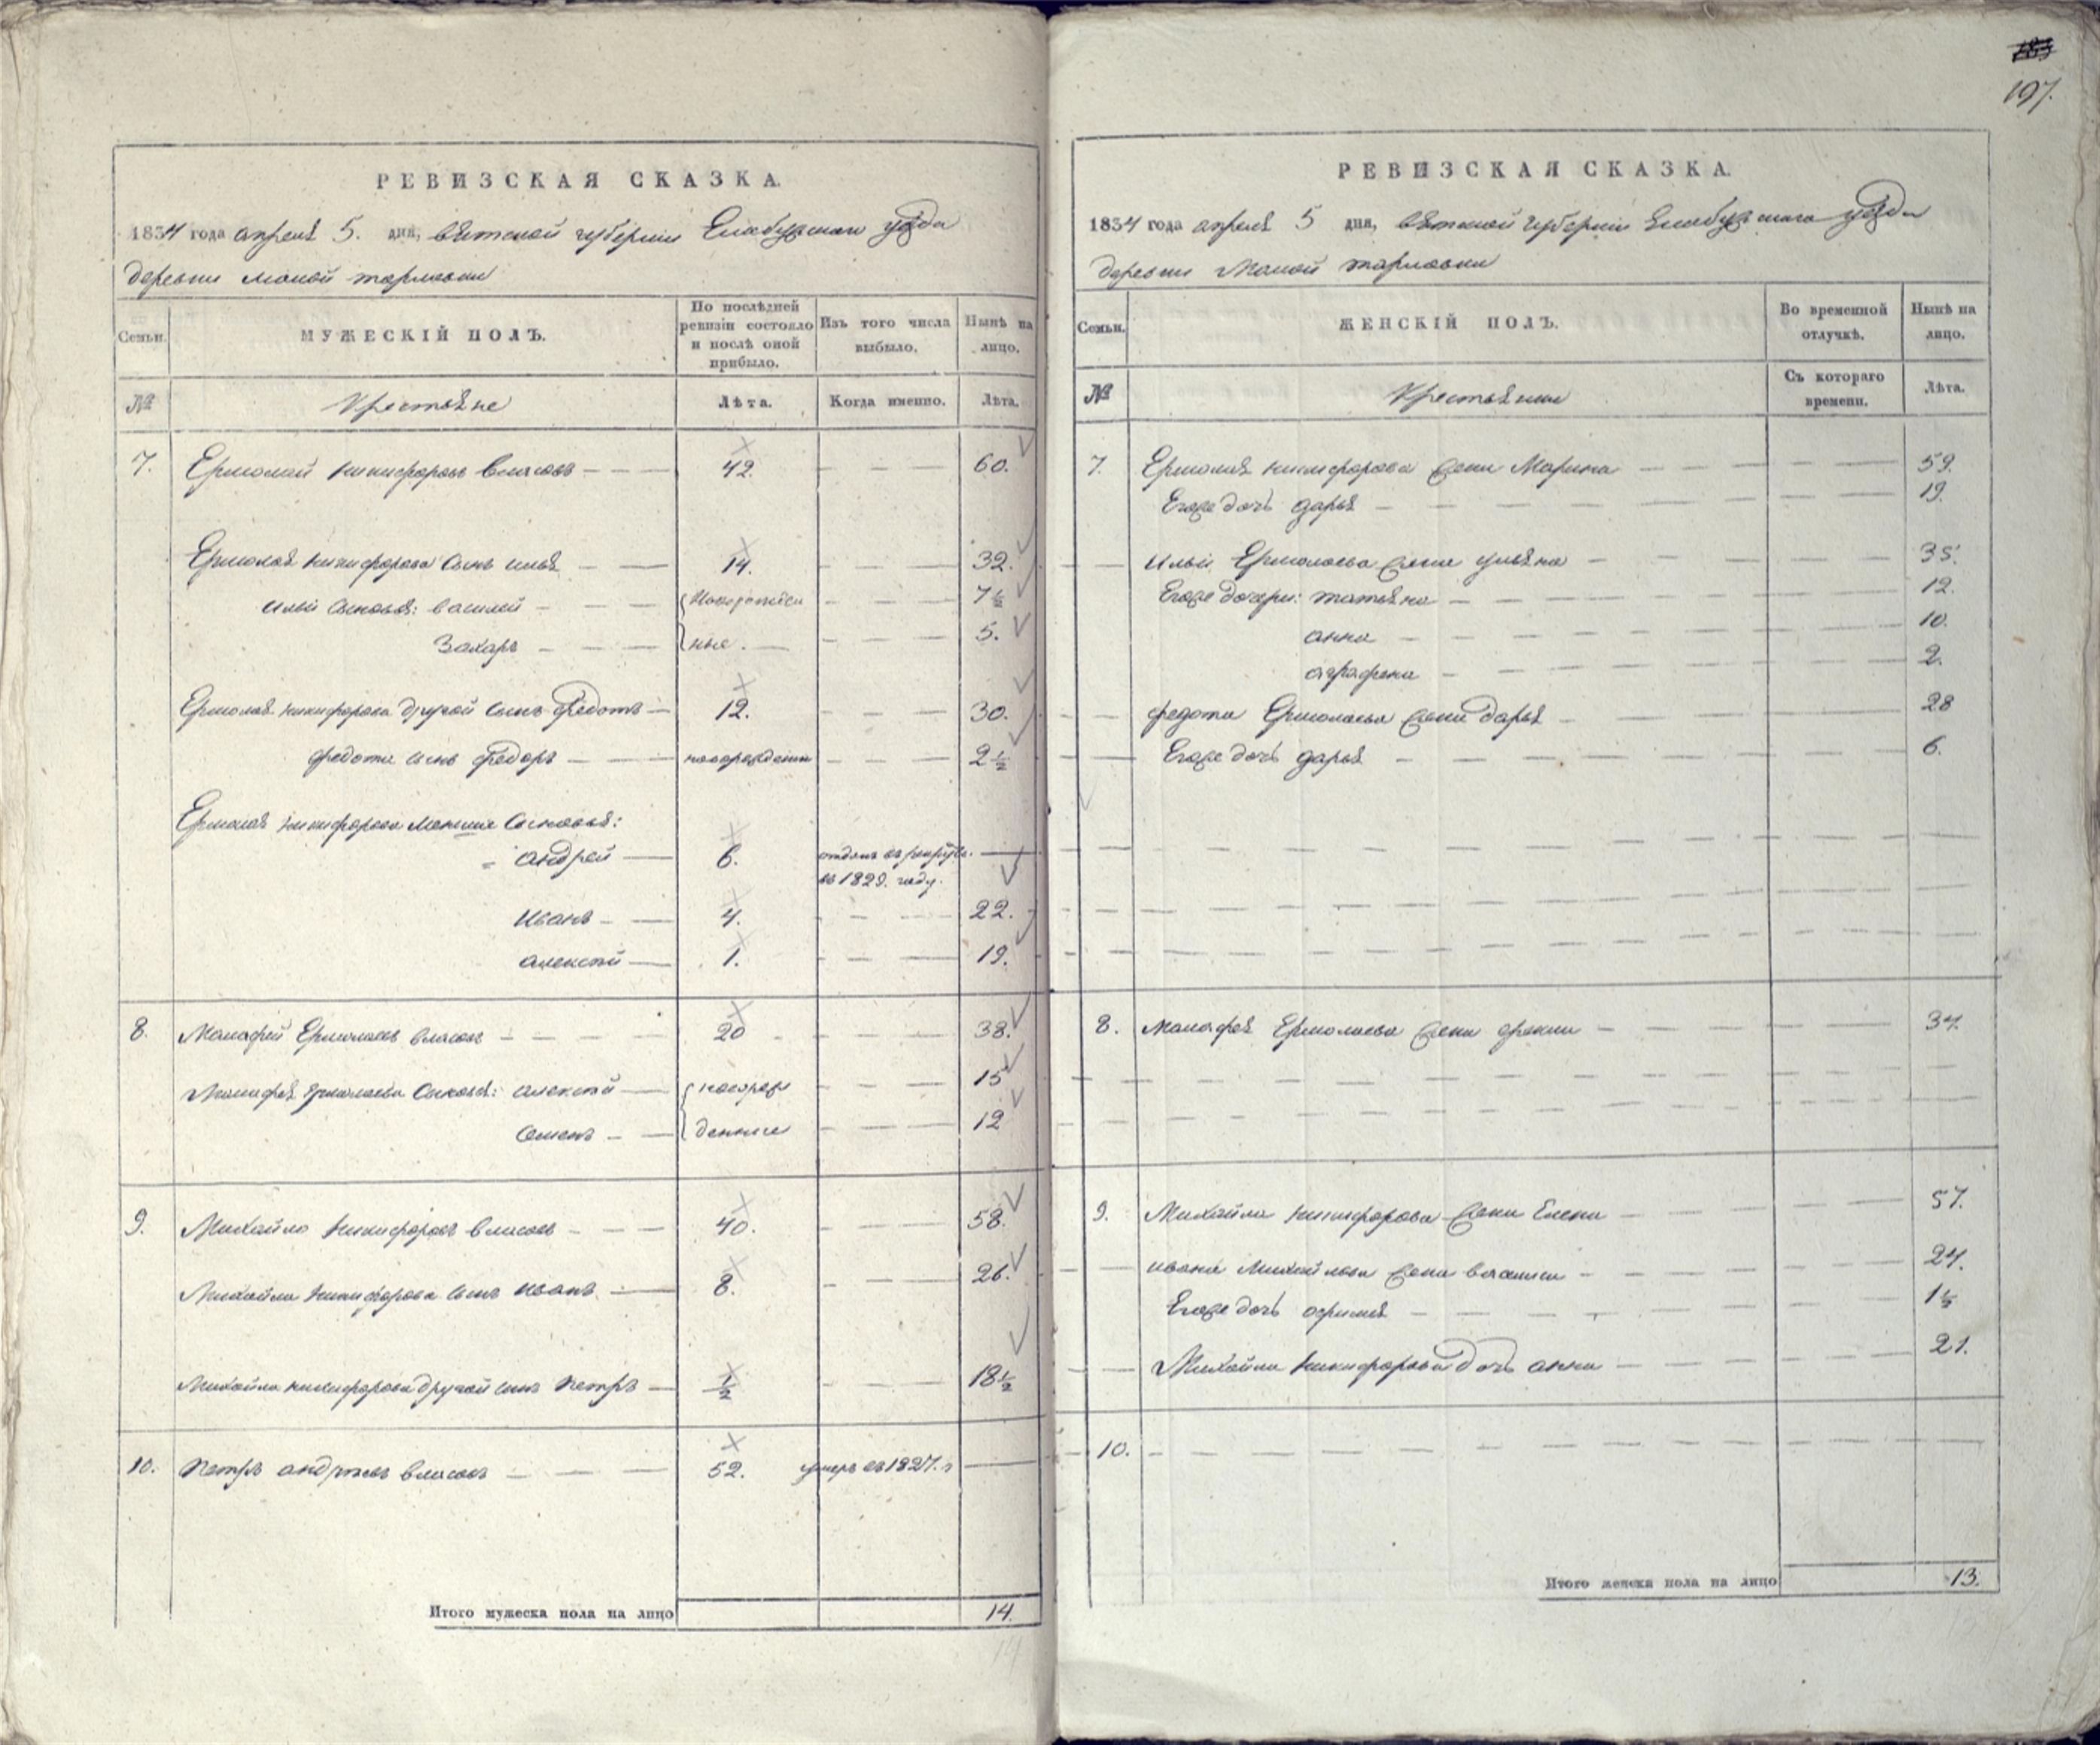 197.
РЕВИЗСКАЯ СКАЗКА.
1834 года апреля 5. дня, вятской губернии Елабужскаго уѣзда
деревни малой тарловки
Семьи. МУЖЕСКІЙ ПОЛЪ. По послѣдней ревизіи состояло и послѣ оной прибыло. Изъ того числа выбыло. Нынѣ на лицо.
№ Крестьяне Лѣта. Когда именно. Лѣта.
7. Ермолай никифоровъ власовъ 42. 60.
Ермолая никифорова сынъ илья 14. 32.
ильи сыновья: василей новорожден 7 1/2
Захаръ ныя. 5.
Ермолая никифорова другой сынъ федотъ 12. 30.
федота сынъ федоръ новорожденъ 2 1/2
Ермолая никифорова меньшие сыновья:
андрей 6. отданъ въ рекруты.
въ 1829. году.
Иванъ 4. 22.
алексѣй 1. 19.
8. Малафей Ермолаевъ власовъ 20 38.
Малафея Ермолаева сыновья: алексѣй новорож 15
семенъ денные 12
9. Михайло никифоровъ власовъ 40. 58.
Михайла никифорова сынъ иванъ 8. 26.
Михайла никифорова другой сынъ петръ 1/2 18 1/2
10. Петръ андреевъ власовъ 52. умеръ въ 1827. г
Итого мужеска пола на лицо 14.
14
РЕВИЗСКАЯ СКАЗКА.
1834 года апреля 5 дня, вятской губернии Елабужскаго уѣзда
деревни Малой тарловки
Семьи. ЖЕНСКІЙ ПОЛЪ. Во временной отлучкѣ. Нынѣ на лицо.
№ Крестьянки Съ котораго времени. Лѣта.
7. Ермолая никифорова жена Марина 59.
Егоже дочь дарья 19.
ильи Ермолаева жена ульяна 35.
Егоже дочери: татьяна 12.
анна 10.
аграфена 2.
федота Ермолаева жена дарья 28
Егоже дочь дарья 6.
8. малафея Ермолаева жена 34.
9. Михайла никифорова жена Елена 57.
ивана Михайлова жена василиса 24.
Егоже дочь афимья 1 1/2
Михайла никифорова дочь анна 21.
10.
Итого женска пола на лицо 13.